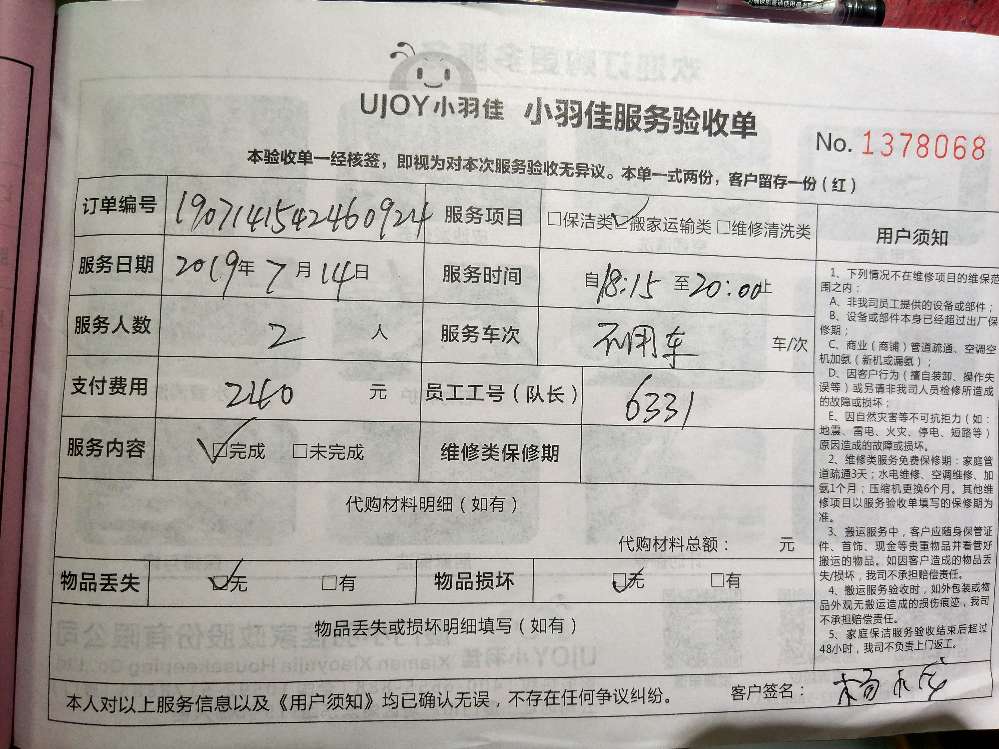 UJOY小羽佳 小羽佳服务验收单
No. 1378068
本验收单一经核签，即视为对本次服务验收无异议。本单一式两份，客户留存一份（红）
订单编号 1907141542460924 服务项目 □保洁类 ☑搬家运输类 □维修清洗类
服务日期 2019年7月14日 服务时间 自18:15至20:00止
服务人数 2 人 服务车次 不用车 车/次
支付费用 240 元 员工工号（队长） 6331
服务内容 ☑完成 □未完成 维修类保修期
代购材料明细（如有）
代购材料总额： 元
物品丢失 ☑无 □有 物品损坏 ☑无 □有
物品丢失或损坏明细填写（如有）
本人对以上服务信息以及《用户须知》均已确认无误，不存在任何争议纠纷。 客户签名：
用户须知
1、下列情况不在维修项目的维保范
围之内：
A、非我司员工提供的设备或部件；
B、设备或部件本身已经超过出厂保
修期；
C、商业（商浦）管道疏通、空调空
机加氨（新机或漏氨）；
D、因客户行为（擅自装卸、操作失
误等）或另请非我司人员检修所造成
的故障或损坏；
E、因自然灾害等不可抗拒力（如：
地震、雷电、火灾、停电、短路等）
原因造成的故障或损坏。
2、维修类服务免费保修期：家庭管
道疏通3天；水电维修、空调维修、加
氨1个月；压缩机更换6个月。其他维
修项目以服务验收单填写的保修期为
准。
3、搬运服务中，客户应随身保管证
件、首饰、现金等贵重物品并看管好
搬运的物品。如因客户造成的物品丢
失/损坏，我司不承担赔偿责任。
4、搬运服务验收时，如外包装或物
品外观无搬运造成的损伤痕迹，我司
不承担赔偿责任。
5、家庭保洁服务验收结束后超过
48小时，我司不负责上门返工。